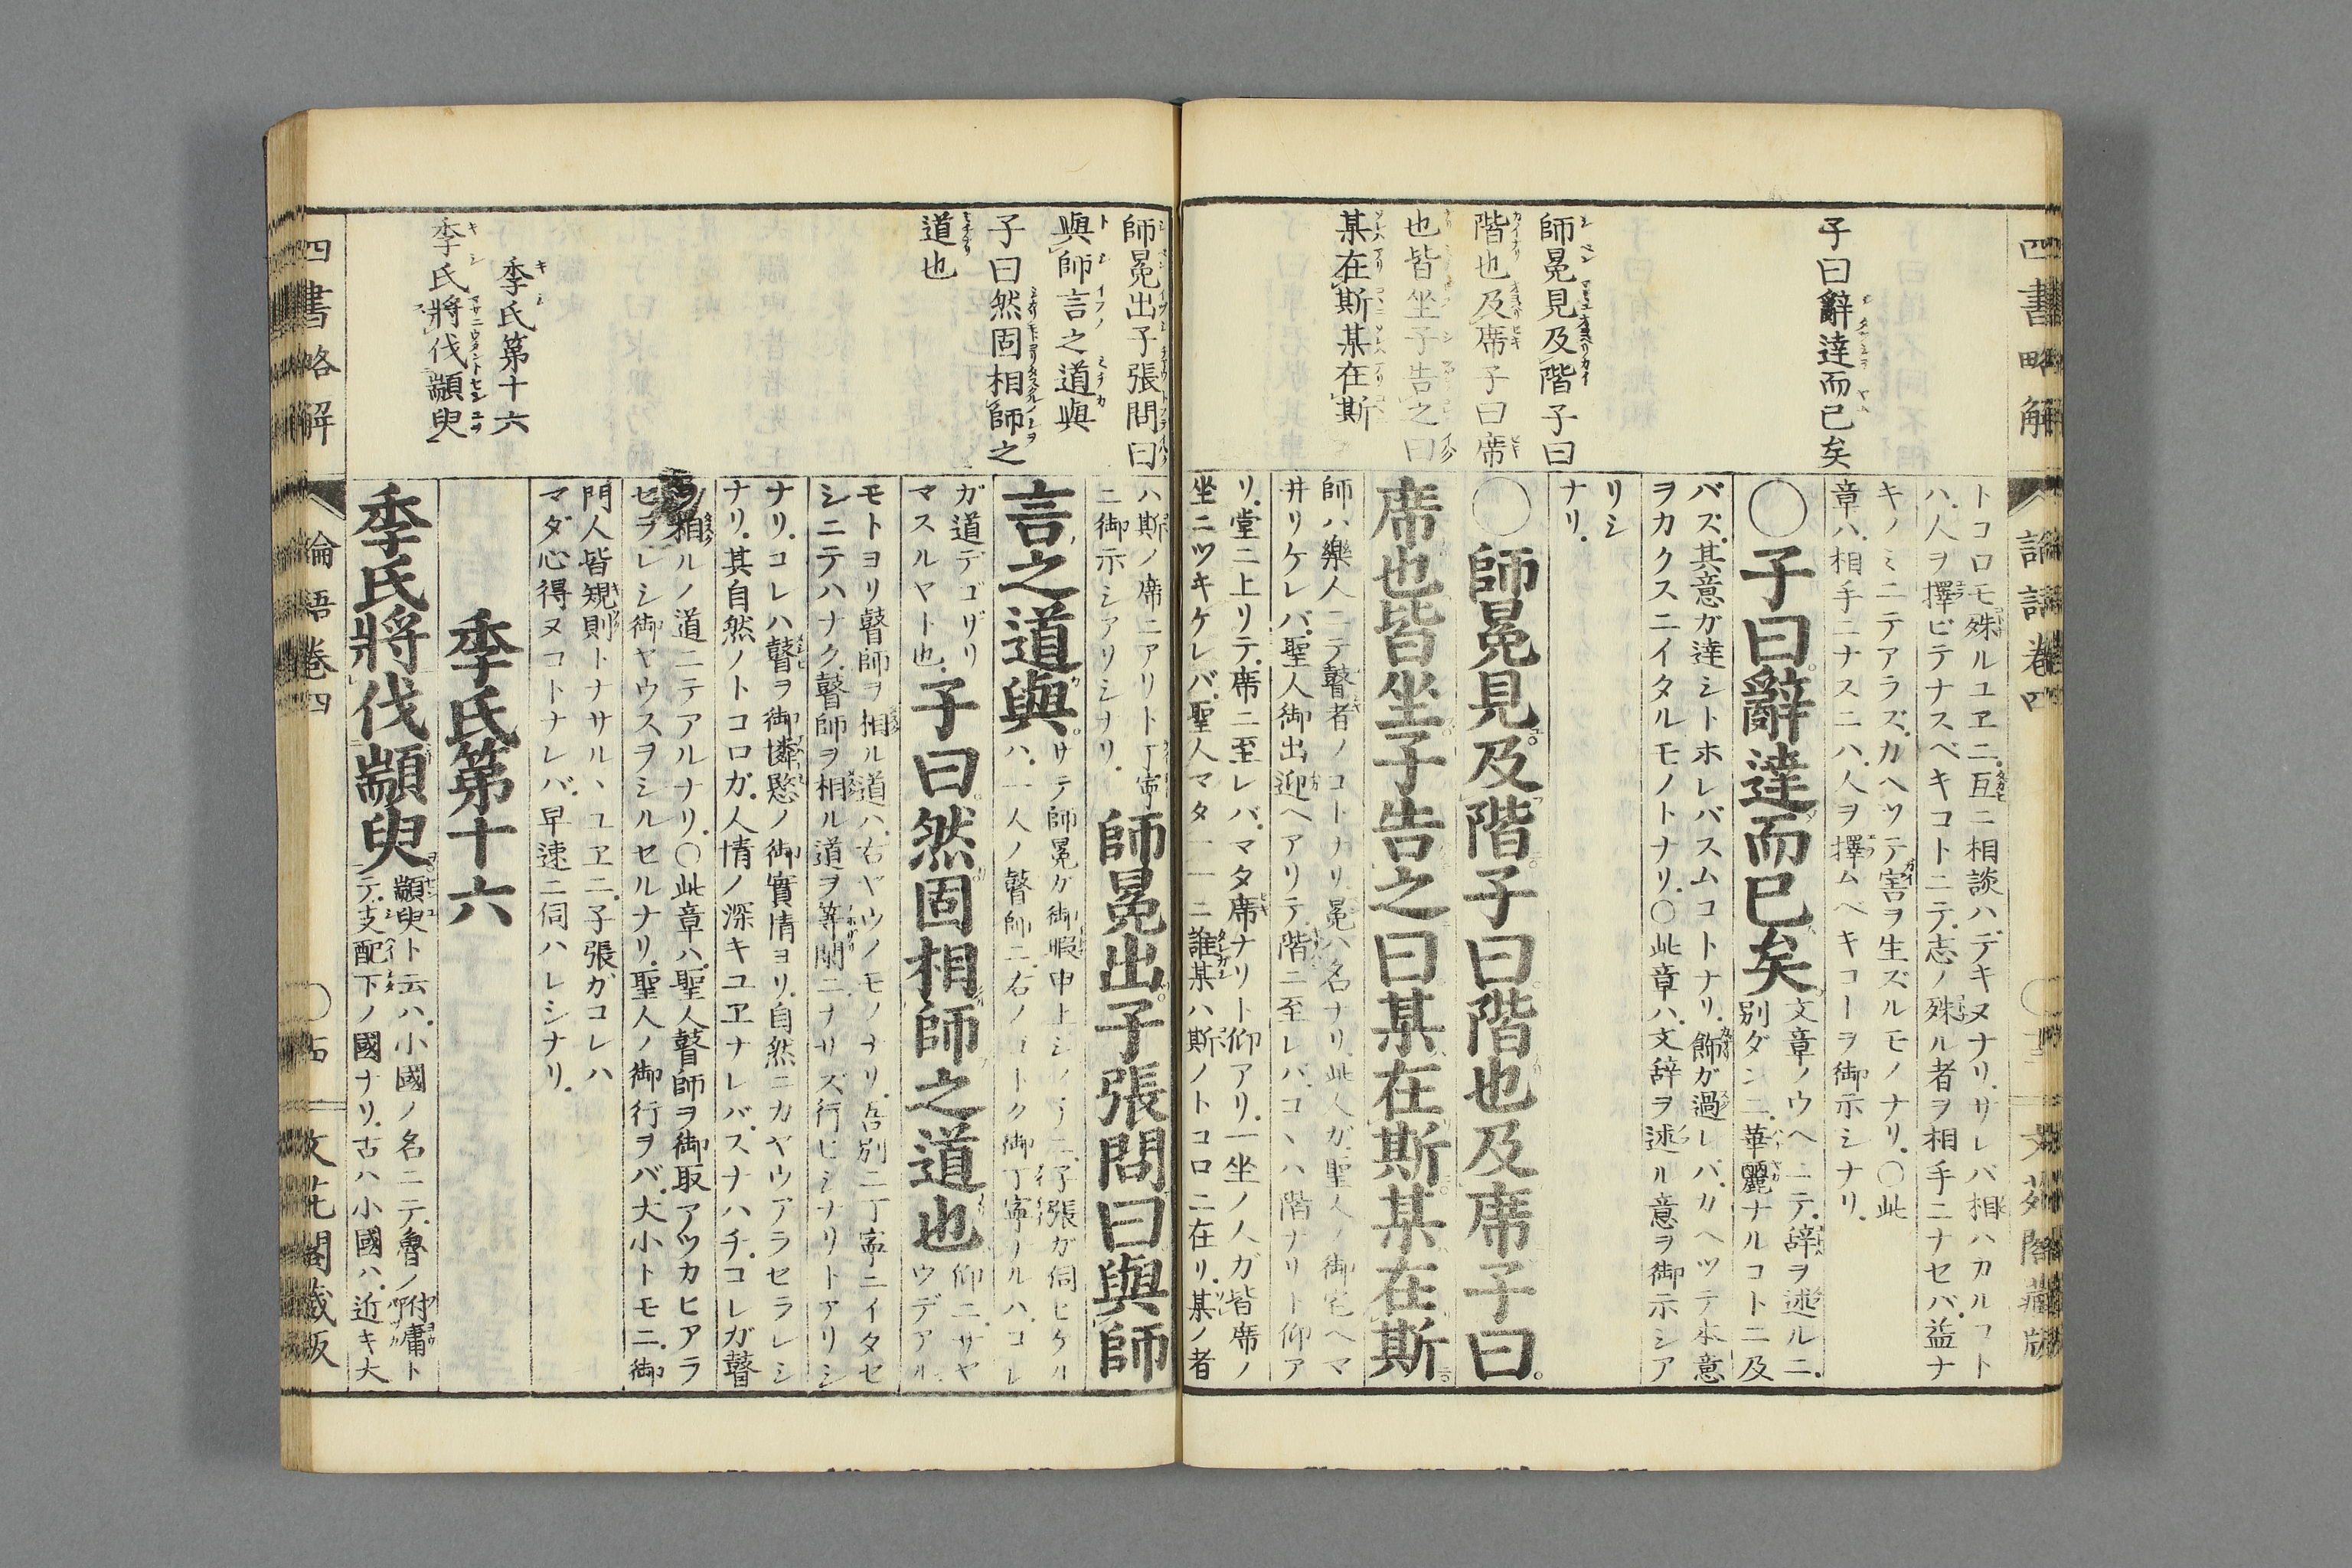 四書略解
論語卷四
文苑閣藏版
子曰辭達而已矣
師冕見及階子曰
階也及席子曰席
也皆坐子告之曰
某在斯某在斯
トコロモ殊ルユヱニ互ニ相談ハデキヌナリサレバ相ハカルコト
ハ人ヲ擇ビテナスベキコトニテ志ノ殊ル者ヲ相手ニナセバ益ナ
キノミニテアラズカヘツテ害ヲ生ズルモノナリ〇此
章ハ相手ニナスニハ人ヲ擇ムベキコーヲ御示シナリ
〇子曰辭達而已矣
文章ノウヘニテ辞ヲ述ルニ
別ダンニ華麗ナルコトニ及
バズ其意ガ達シトホレバスムコトナリ飾ガ過レバカヘツテ本意
ヲカクスニイタルモノトナリ〇此章ハ文辞ヲ述ル意ヲ御示シア
リシ
ナリ
〇師冕見及階子曰階也及席子曰
席也皆坐子告之曰某在斯某在斯
師ハ樂人ニテ瞽者ノコトナリ冕ハ名ナリ此人ガ聖人ノ御宅ヘマ
井リケレバ聖人御出迎ヘアリテ階ニ至レバコヽハ階ナリト仰ア
リ堂ニ上リテ席ニ至レバマタ席ナリト仰アリ一坐ノ人ガ皆席ノ
坐ニツキケレバ聖人マタ一一ニ誰某ハ斯ノトコロニ在リ某ノ者
師冕出子張問曰
與師言之道與
子曰然固相師之
道也
季氏第十六
季氏將伐顓臾
ハ斯ノ席ニアリト丁寧
ニ御示シアリシナリ
師冕出子張問曰與師
言之道與
サテ師冕ガ御暇申上シノチニ子張ガ伺ヒケル
ハ一人ノ瞽師ニ右ノコトク御丁寧ノルハコレ
ガ道デゴザリ
マスルヤト也
子曰然固相師之道也
仰ニサヤ
ウデアル
モトヨリ瞽師ヲ相ル道ハ右ヤウノモノナリ吾別ニ丁寧ニイタセ
シニテハナク瞽師ヲ相ル道ヲ等閑ニナサズ行ヒシナリトアリシ
ナリコレハ瞽ヲ御憐愍ノ御實情ヨリ自然ニカヤウアラセラレシ
ナリ其自然ノトコロガ人情ノ深キユヱナレバスナハチコレガ瞽
相ルノ道ニテアルナリ〇此章ハ聖人瞽師ヲ御取アツカヒアラ
セラレシ御ヤウスヲシルセルナリ聖人ノ御行ヲバ大小トモニ御
門人皆規則トナサルヽユヱニ子張ガコレハ
マダ心得ヌコトナレバ早速ニ伺ハレシナリ
季氏第十六
季氏將伐顓臾
顓臾ト云ハ小國ノ名ニテ魯ノ附庸ト
テ支配下ノ國ナリ古ハ小國ハ近キ大
四書略解
論語卷四
文苑閣藏版